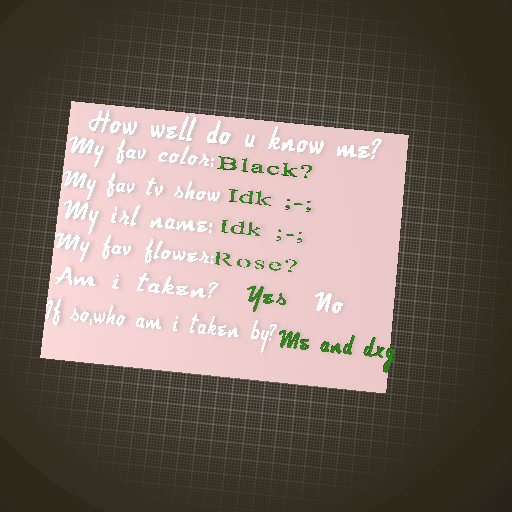 How well do u know me?
My fav color: Black?
My fav tv show Idk ;-;
My irl name: Idk ;-;
My fav flower: Rose?
Am i taken? Yes No
If so,who am i taken by? Me and dxg